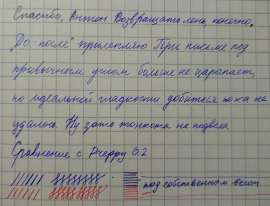 Спасибо, Антон Возвращаю пока, конечно,
"До, после" прилепляю При письме под
привычным углом больше не царапает,
но идеальной гладкости добиться пока не
удалось. Ну зато тонкота не подвела.
Сравнение с Preppy 0.2
под собственным весом